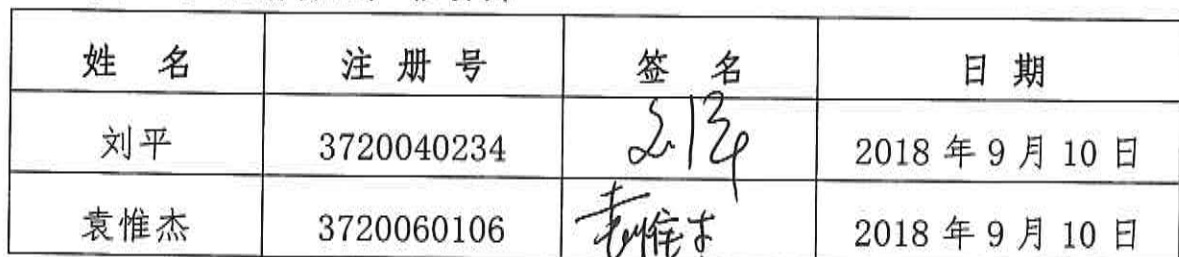 姓 名 注 册 号 签 名 日 期
刘平 3720040234 刘平 2018 年 9 月 10 日
袁惟杰 3720060106 袁惟杰 2018 年 9 月 10 日